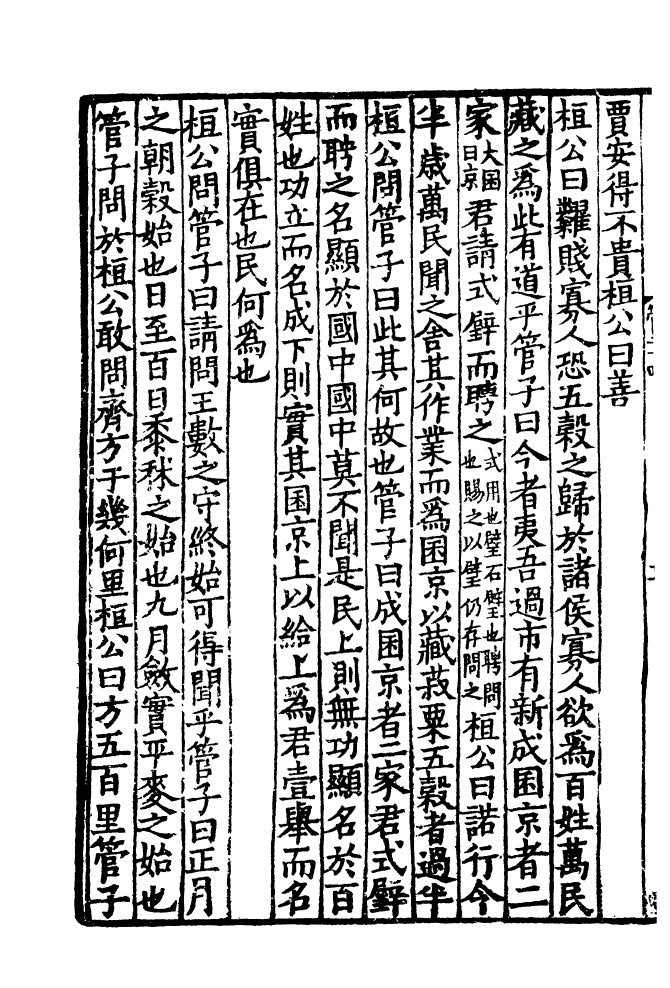 賈安得不貴桓公曰善
桓公曰糶賤寡人恐五穀之歸於諸侯寡人欲爲百姓萬民
藏之爲此有道乎管子曰今者夷吾過市有新成囷京者二
家大囷曰京君請式璧而聘之式用也璧石璧也聘問也賜之以璧仍存問之桓公曰諾行令
半歳萬民聞之舍其作業而爲囷京以藏菽粟五穀者過半
桓公問管子曰此其何故也管子曰成囷京者二家君式璧
而聘之名顯於國中國中莫不聞是民上則無功顯名於百
姓也功立而名成下則實其囷京上以給上爲君壹舉而名
實俱在也民何爲也
桓公問管子曰請問王數之守終始可得聞乎管子曰正月
之朝穀始也日至百日黍秫之始也九月斂實平麥之始也
管子問於桓公敢問齊方于幾何里桓公曰方五百里管子